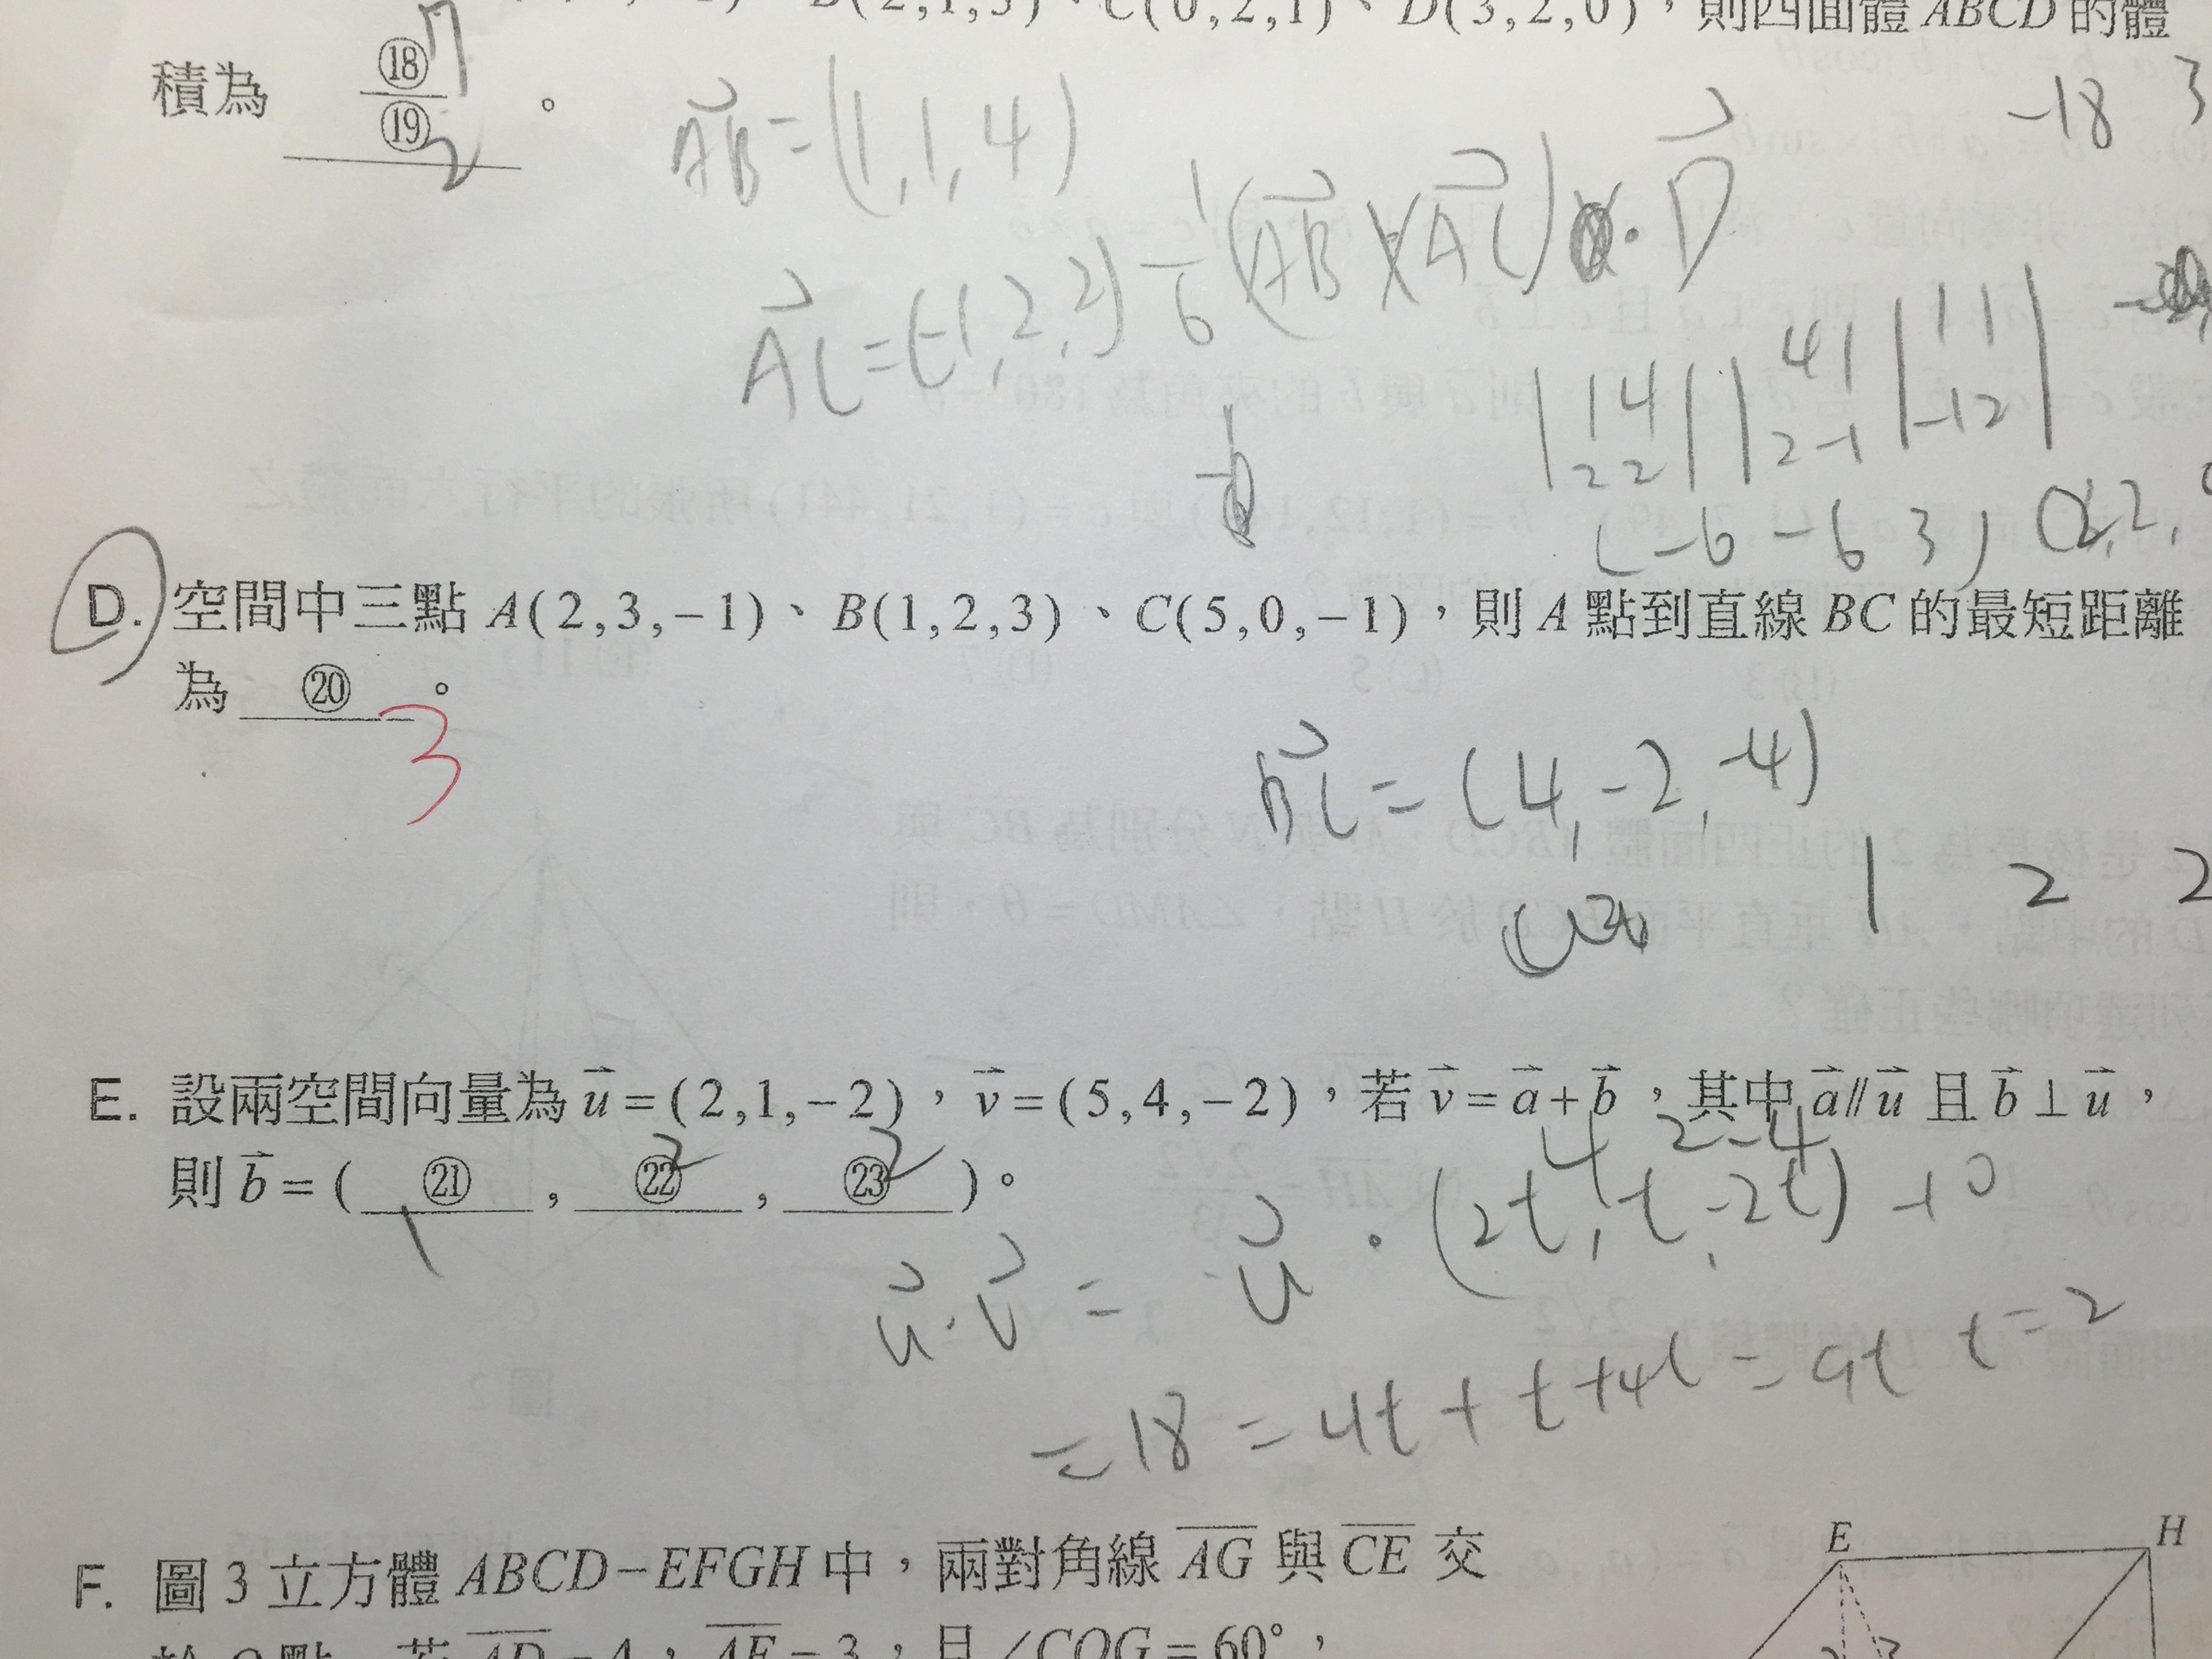 B(2,1,3)、C(0,2,1)、D(3,2,0),則四面體 ABCD 的體
積為 ⑱/⑲ 。 7 2
AB=(1,1,4)
-18 3
1/6 (AB×AC)·D
AC=(-1,2,2)
|1 4| |4 1| |1 1|
|2 2| |2 -1| |-1 2|
(-6 -6 3)
D. 空間中三點 A(2,3,-1)、B(1,2,3)、C(5,0,-1),則 A 點到直線 BC 的最短距離
為 ⑳ 。
3
BC=(4,-2,-4)
1 2 2
E. 設兩空間向量為 u=(2,1,-2),v=(5,4,-2),若 v=a+b,其中 a∥u 且 b⊥u,
4 2 -4
則 b=( ㉑ , ㉒ , ㉓ )。
1 2 2
u·v = u·(2t,t,-2t)+0
=18=4t+t+4t=9t t=2
E H
F. 圖 3 立方體 ABCD-EFGH 中,兩對角線 AG 與 CE 交
於 O 點,若 AD=4,AE=3,且∠COG=60°,